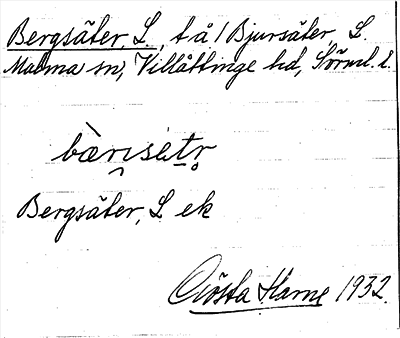 Bergsäter, L., t å / Bjursäter, L.
Malma sn, Villåttinge hd, Sörml. l.
bärisætr
Bergsäter, L ek
Gösta Harne 1932.